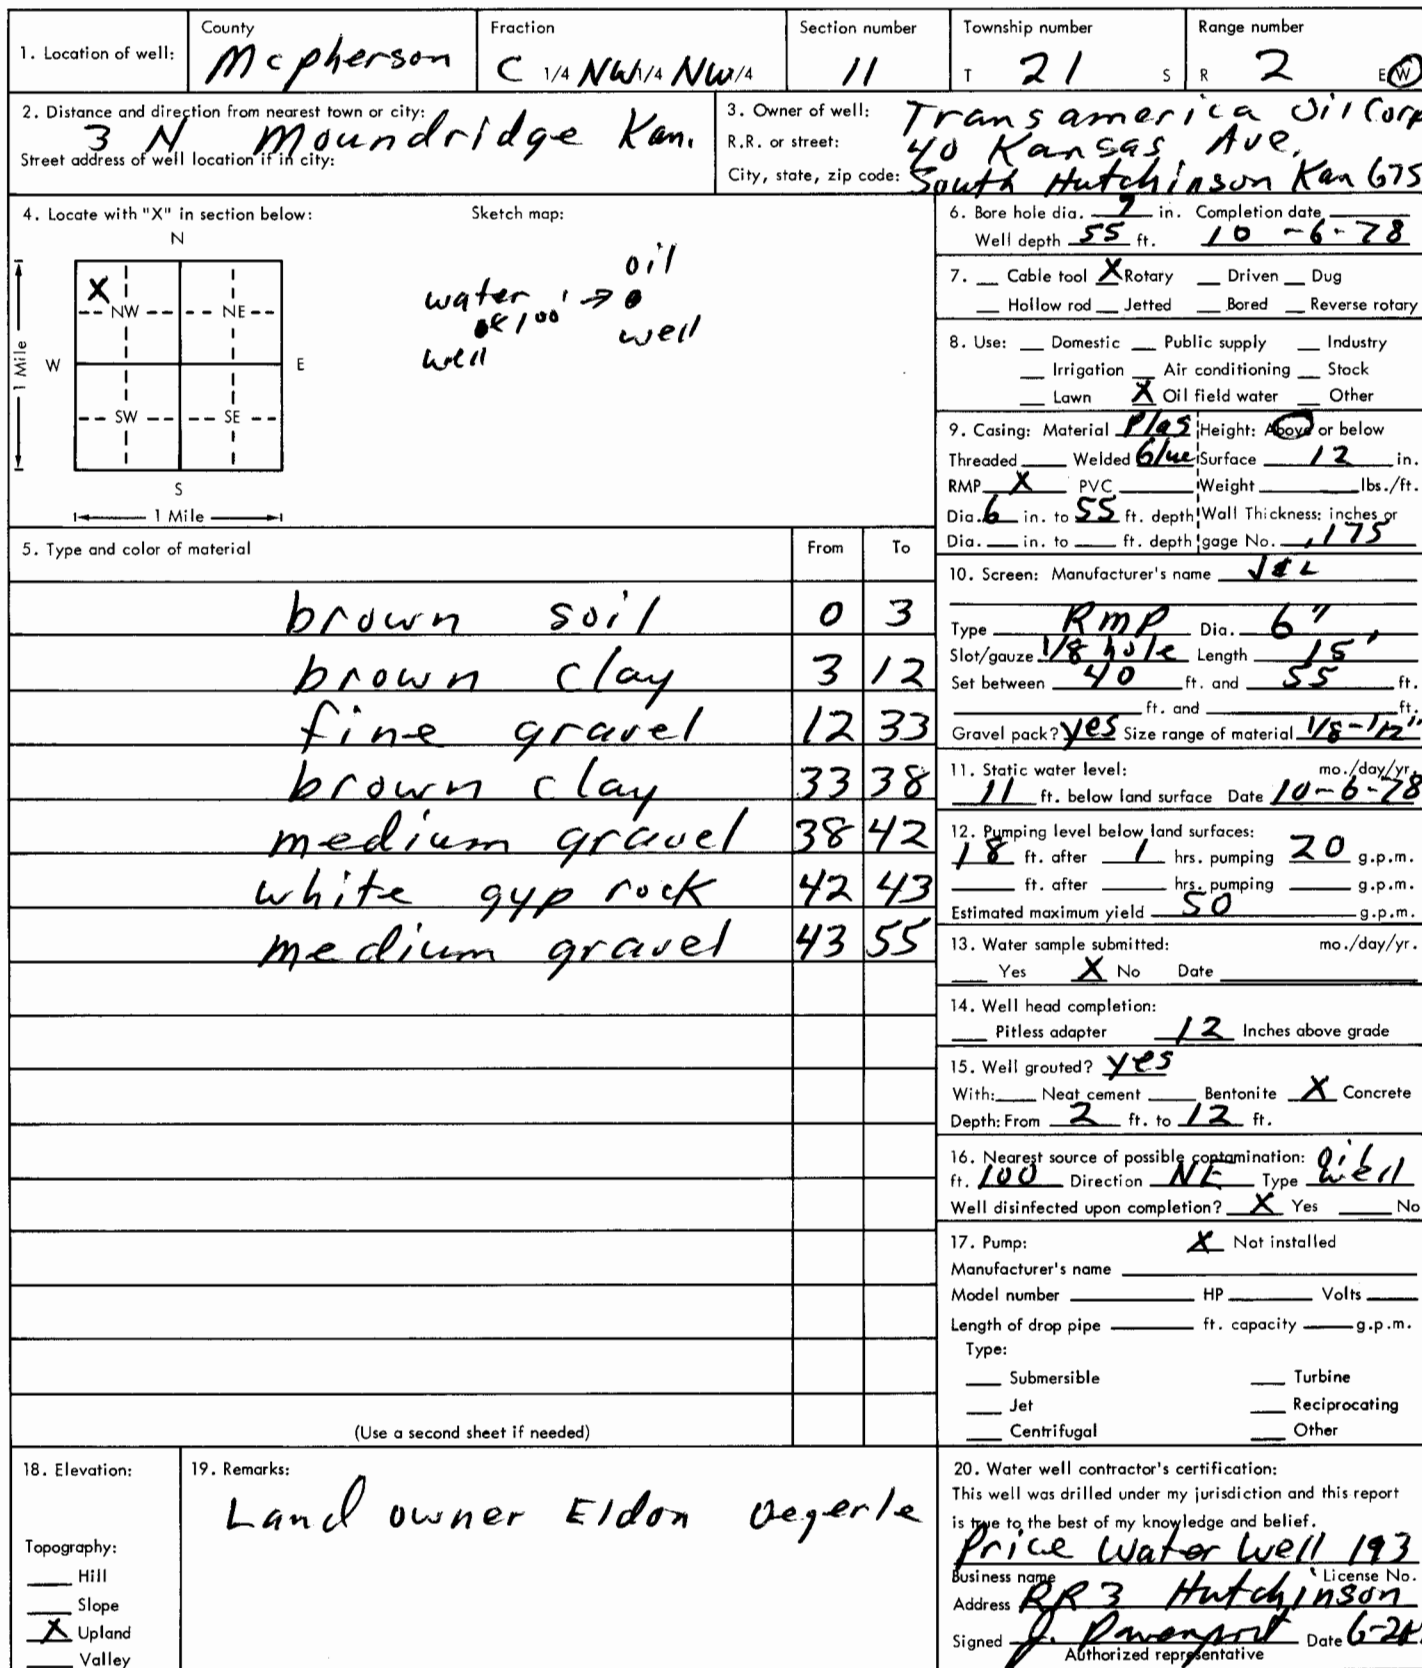 1. Location of well: County Mcpherson Fraction C 1/4 NW 1/4 NW 1/4 Section number 11 Township number T 21 S Range number R 2 E W
2. Distance and direction from nearest town or city:
3 N Moundridge Kan.
Street address of well location if in city:
3. Owner of well: Transamerica Oil Corp
R.R. or street: 40 Kansas Ave.
City, state, zip code: South Hutchinson Kan 675
4. Locate with "X" in section below:
N
X
NW NE
W E
SW SE
S
1 Mile
1 Mile
Sketch map:
oil
water
100'
well
well
5. Type and color of material From To
brown soil 0 3
brown clay 3 12
fine gravel 12 33
brown clay 33 38
medium gravel 38 42
white gyp rock 42 43
medium gravel 43 55
(Use a second sheet if needed)
6. Bore hole dia. 9 in. Completion date
Well depth 55 ft. 10-6-78
7. Cable tool X Rotary Driven Dug
Hollow rod Jetted Bored Reverse rotary
8. Use: Domestic Public supply Industry
Irrigation Air conditioning Stock
Lawn X Oil field water Other
9. Casing: Material Plas Height: Above or below
Threaded Welded Glue Surface 12 in.
RMP X PVC Weight lbs./ft.
Dia. 6 in. to 55 ft. depth Wall Thickness: inches or
Dia. in. to ft. depth gage No. .175
10. Screen: Manufacturer's name J&L
Type Rmp Dia. 6"
Slot/gauze 1/8 hole Length 15'
Set between 40 ft. and 55 ft.
ft. and ft.
Gravel pack? yes Size range of material 1/8-1/2"
11. Static water level: mo./day/yr.
11 ft. below land surface Date 10-6-78
12. Pumping level below land surfaces:
18 ft. after 1 hrs. pumping 20 g.p.m.
ft. after hrs. pumping g.p.m.
Estimated maximum yield 50 g.p.m.
13. Water sample submitted: mo./day/yr.
Yes X No Date
14. Well head completion:
Pitless adapter 12 Inches above grade
15. Well grouted? yes
With: Neat cement Bentonite X Concrete
Depth: From 2 ft. to 12 ft.
16. Nearest source of possible contamination:
ft. 100 Direction NE Type oil well
Well disinfected upon completion? X Yes No
17. Pump: X Not installed
Manufacturer's name
Model number HP Volts
Length of drop pipe ft. capacity g.p.m.
Type:
Submersible Turbine
Jet Reciprocating
Centrifugal Other
18. Elevation:
Topography:
Hill
Slope
X Upland
Valley
19. Remarks:
Land owner Eldon Oegerle
20. Water well contractor's certification:
This well was drilled under my jurisdiction and this report
is true to the best of my knowledge and belief.
Price Water Well 193
Business name License No.
Address RR 3 Hutchinson
Signed J. Davenport Date
Authorized representative